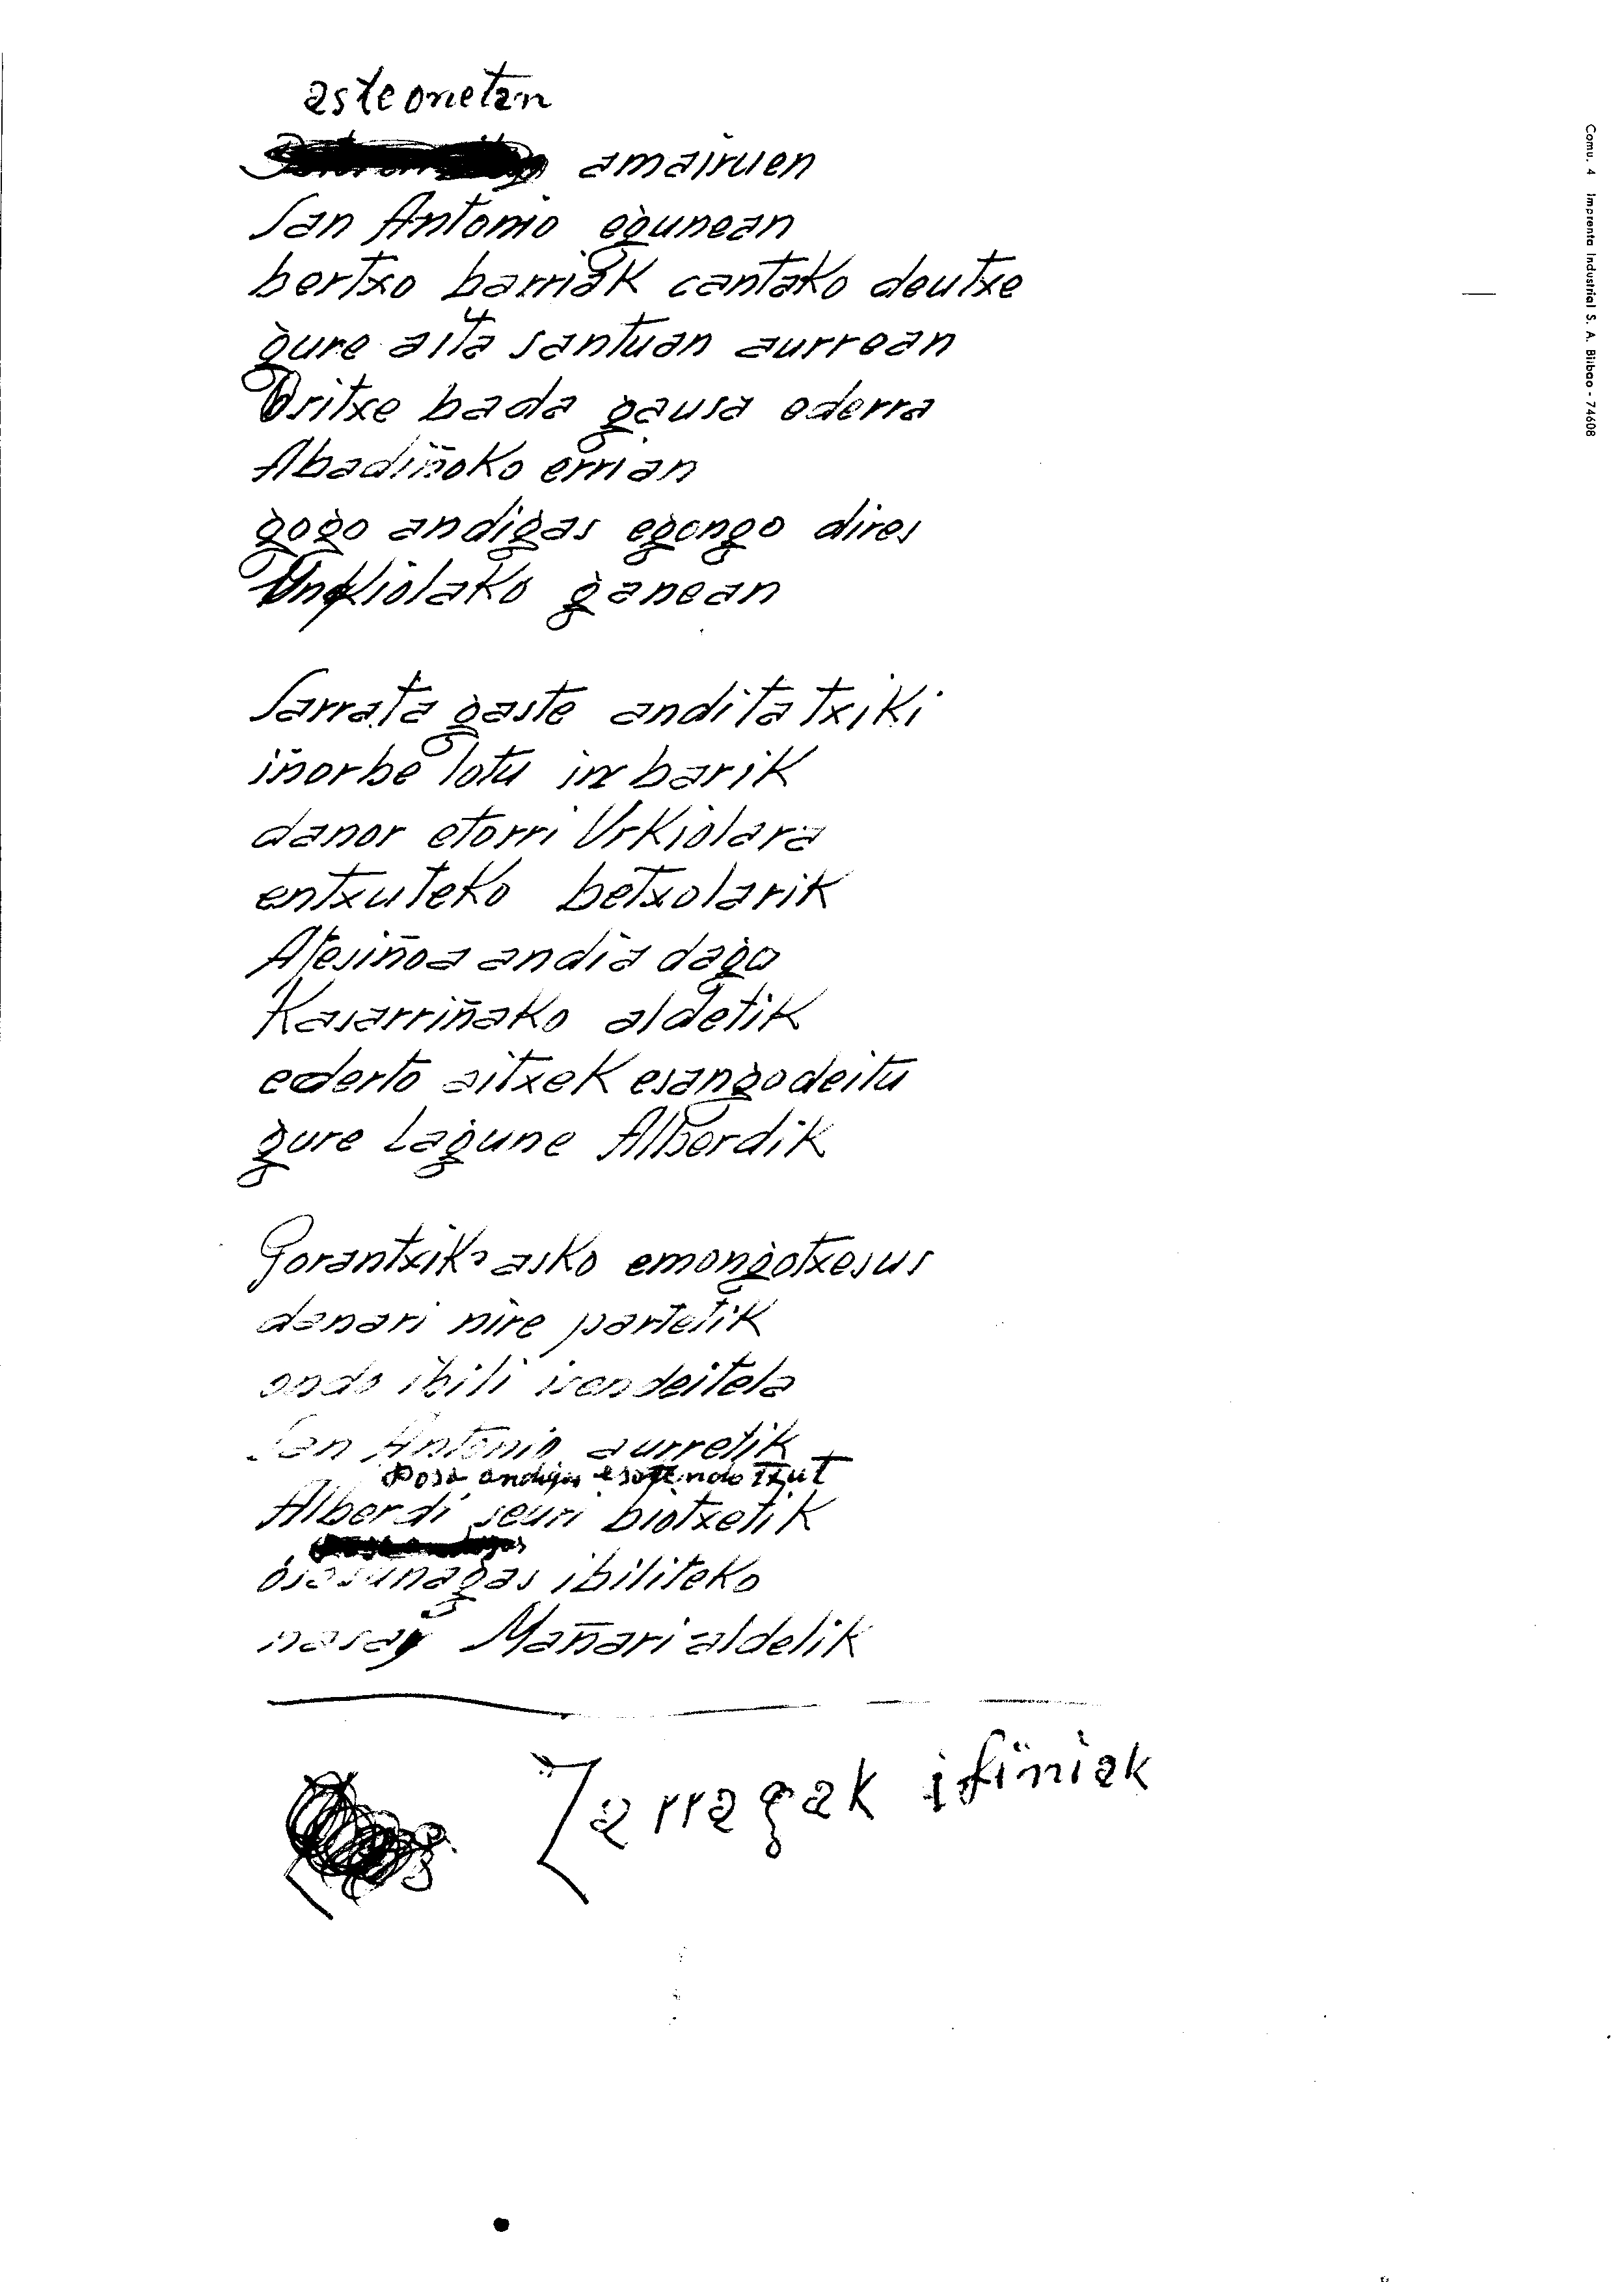 asteonetan
amairuen
San Antonio egunean
bertxo barriak cantako deutxe
gure aita santuan aurrean
Oritxe bada gausa ederra
Abadiñoko errian
gogo andigas egongo dires
Urkiolako ganean
Sarrata gaste andita txiki
iñorbe lotu in barik
danor etorri Urkiolara
entxuteko betxolarik
Atesiñoa andia dago
Kasarriñako aldetik
ederto aitxek esangodeitu
gure Lagune Alberdik
Gorantxik asko emongotxesus
danari nire partetik
ondo ibili isandeitela
San Antonio aurretik
Posa andigas esaten dotxut
Alberdi seuri biotxetik
osasunagas ibiliteko
Mañari aldetik
Zarragak ifiniak
Comu. 4 Imprenta Industrial S. A. Bilbao - 74608